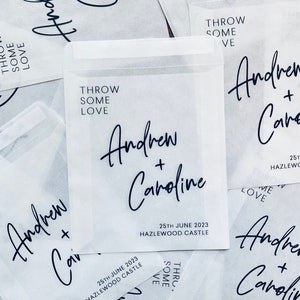 THROW
SOME
LOVE
Andrew
+
Caroline
25TH JUNE 2023
HAZLEWOOD CASTLE
THROW
SOME
LOVE
THROW
SOME
LOVE
Andrew
+
Caroline
25TH JUNE
HAZLEWOOD CAS
Andrew
+
Ca
25TH JUNE 2023
HAZLEWOOD CASTLE
THROW
SOME
LOVE
Andrew
THROW
SOME
LOVE